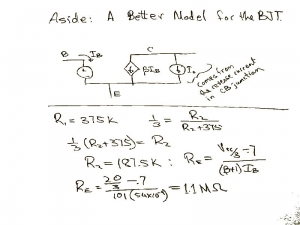 Aside: A Better Model for the BJT.
B IB C
βIB Io
E
Comes from
the reverse current
in CB junction
R1 = 375K 1/3 = R2/(R2+375)
1/3 (R2+375) = R2
R2 = 187.5K : RE = (Vcc/3 - .7)/((β+1) IB)
RE = (20/3 - .7)/(101( = 1.1 MΩ